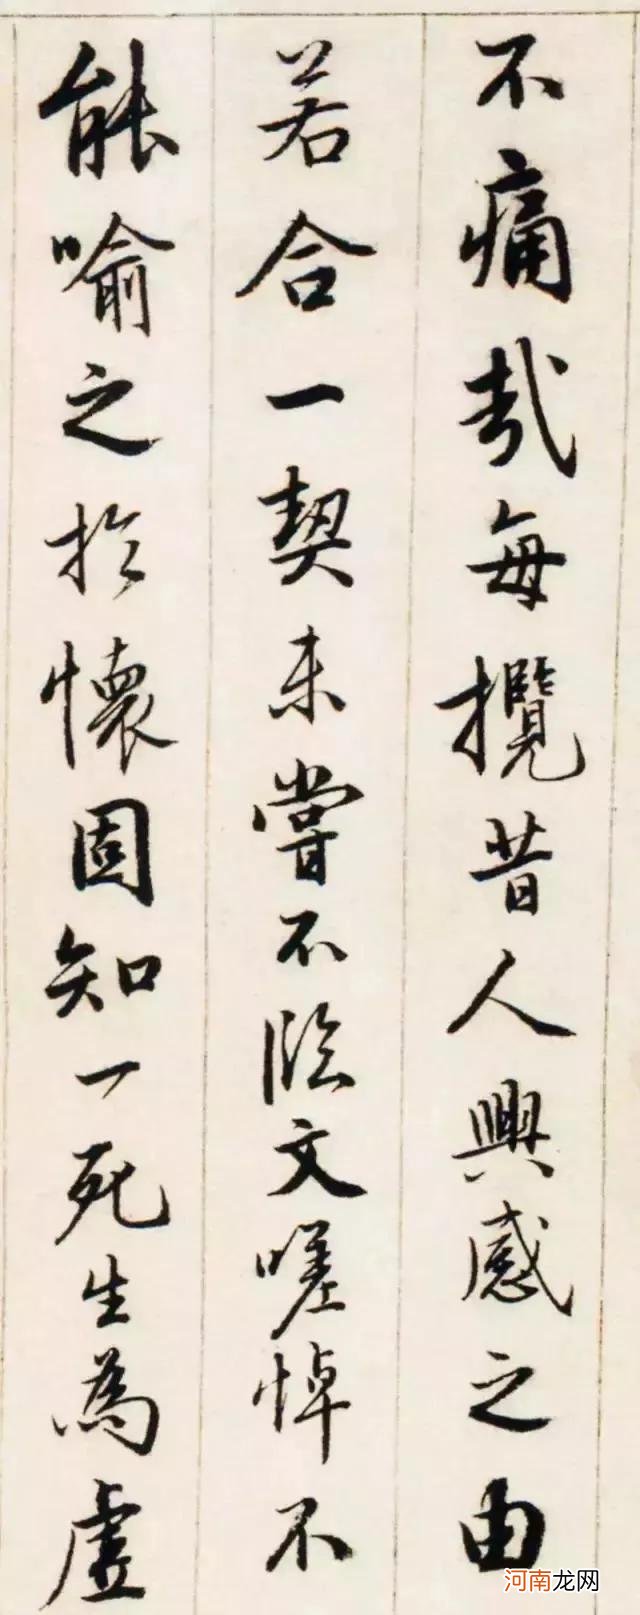 不痛哉每攬昔人興感之由
若合一契未嘗不臨文嗟悼不
能喻之於懷固知一死生為虛
河南龙网